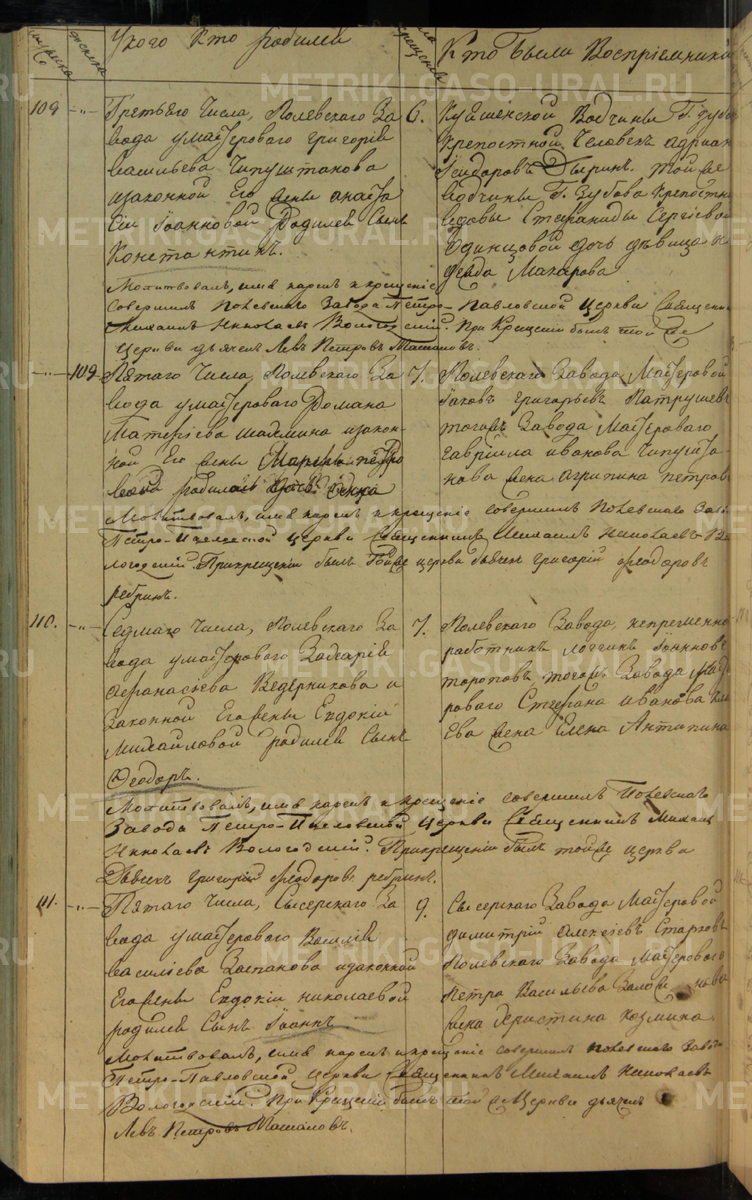 У кого Кто родился
Кто были Восприемники
109 Третьяго Числа, Полевскаго За
вода умастероваго Григорія
Васильева Чипуштанова
изаконной Его жены анаста
сіи Іоанновой Родился Сынъ
Константинъ.
6.
Крепостной Человекъ Адріан
Вотчины Г. Зубова Крепостн
вдовы Стефаниды Сергіевой
Одинцовой дочь девица
Макарова
Молитвовалъ, имя нарекъ и крещеніе
совершилъ Полевскаго Завода Петро-Павловской Церкви Священник
Михаилъ Николаевъ Вологодскій. При Крещеніи былъ той же
Церкви дьячекъ Левъ Петровъ Машановъ.
109 Пятаго Числа, Полевскаго За
вода умастероваго Романа
изакон-
ной Его жены Марины петро
7.
Полевскаго Завода Мастеровой
Іаковъ Григорьевъ Патрушевъ
тогожъ Завода Мастероваго
Гавріила иванова Чипушта
нова жена агрипина петров
Молитвовалъ, имя нарекъ и крещеніе совершилъ Полевскаго Заво
Петро-Павловской Церкви Священникъ Михаилъ Николаевъ Во
логодскій. Прикрещеніи былъ тойже церкви дьячекъ григорій Феодоровъ
ребринъ.
110. Седмаго Числа, Полевскаго За
вода умастероваго Захарія
Афанасьева Ведерникова и
Законной Его жены Евдокіи
Михайловой родился Сынъ
Феодоръ.
7.
Полевскаго Завода непременно
работникъ логгинъ Іоанновъ
тороповъ тогожъ Завода масте
роваго Стефана иванова
жена Елена Антипина
Молитвовалъ, имя нарекъ и крещеніе совершилъ Полевскаго
Завода Петро-Павловской Церкви Священникъ Михаилъ
Николаевъ Вологодскій. Прикрещеніи былъ тойже церкви
Дьячекъ григорій Феодоровъ ребринъ.
111. Пятаго Числа, Сысерскаго За
вода умастероваго Василія
Васильева Заспанова изаконной
Его жены Евдокіи николаевой
родился Сынъ Іоаннъ
9.
Сысерскаго Завода Мастеровой
димитрій Алексіевъ Старковъ
Полевскаго Завода Мастероваго
Петра Васильева
жена Христина Козмина
Молитвовалъ, имя нарекъ и крещеніе совершилъ Полевскаго Завода
Петро-Павловской Церкви Священникъ Михаилъ Николаевъ
Вологодскій. При Крещеніи былъ той же Церкви дьячекъ
Левъ Петровъ Машановъ.
METRIKI.GASO-URAL.RU